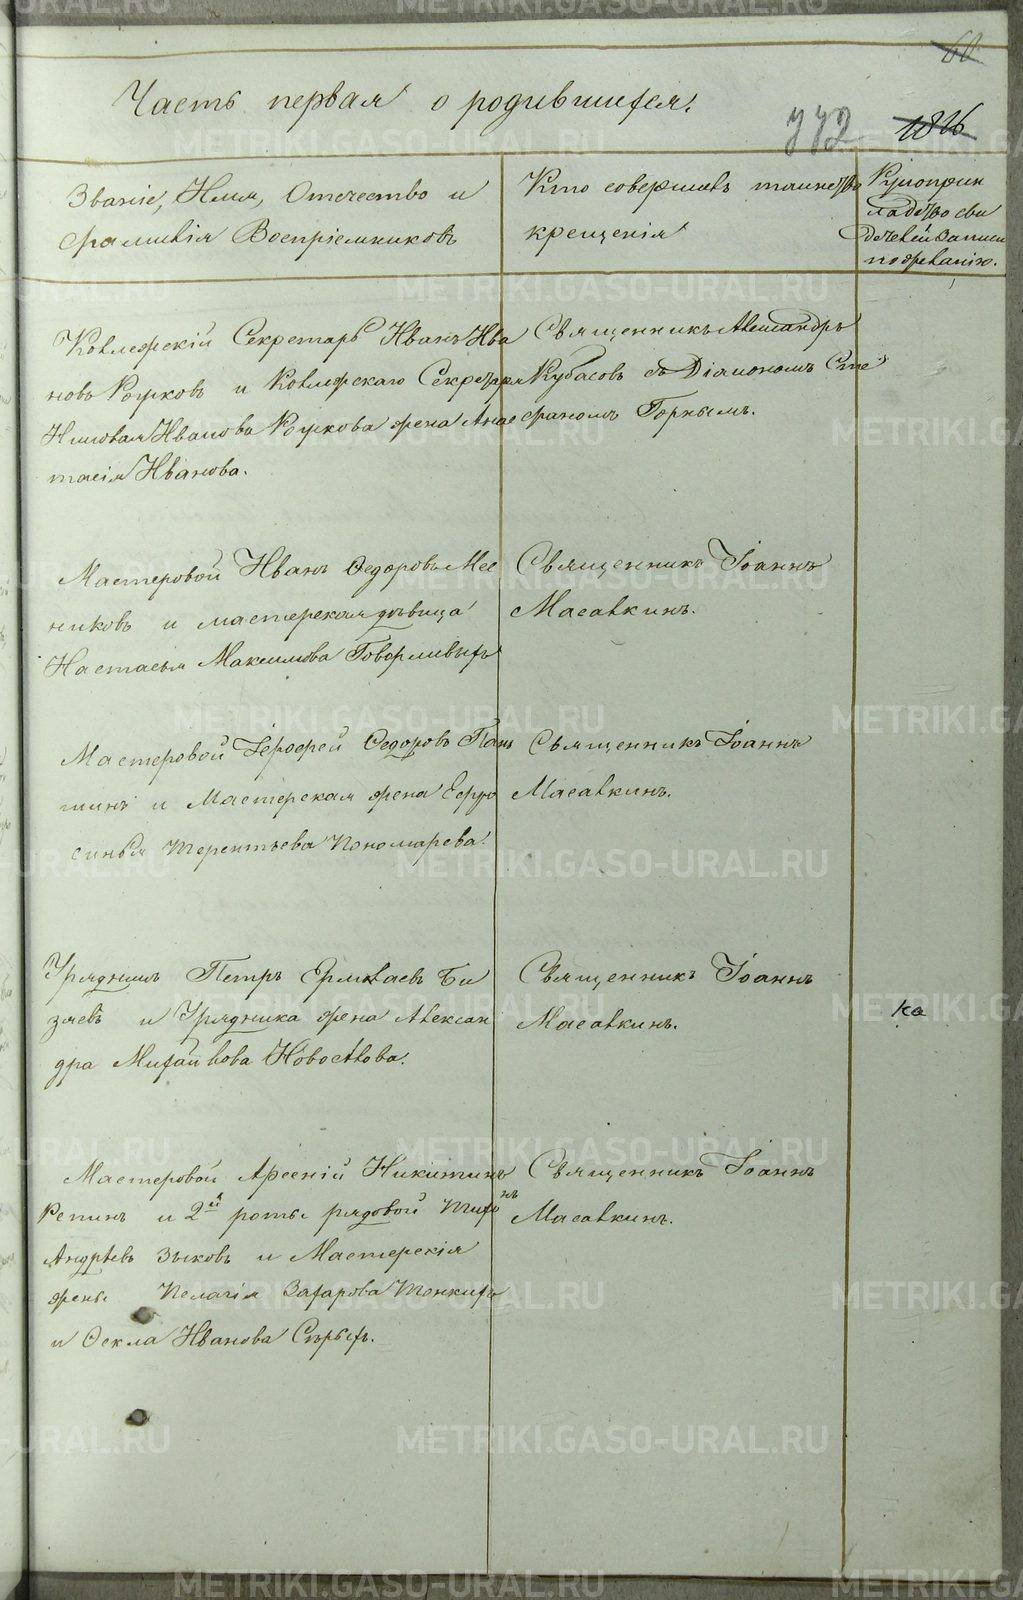 60
Часть первая о родившихся.
772 1816
Званіе, Имя, Отечество и
фамилія Воспріемниковъ
Кто совершалъ таинство
крещенія
Рукоприк
ладство сви
детелей записи
по желанію.
Коллежскій Секретарь Иванъ Ива
новъ Рожковъ и Коллежскаго Секретаря
Иванова Рожкова жена Анас
тасія Иванова.
Священникъ Александръ
Кубасовъ съ Діакономъ Сте
фаномъ Горнымъ.
Мастеровой Иванъ Ѳедоровъ Мес
никовъ и мастерская дѣвица
Настасья Максимова Говорливыхъ
Священникъ Іоаннъ
Масалкинъ.
Мастеровой Іерофей Ѳедоровъ Пань
шинъ и Мастерская жена Евфро
синья Терентьева Пономарева.
Священникъ Іоаннъ
Масалкинъ.
Урядникъ Петръ Ермолаевъ Би
зяевъ и Урядника жена Алексан
дра Михайлова Новосёлова.
Священникъ Іоаннъ
Масалкинъ.
Мастеровой Арсеній Никитинъ
Репинъ и 2й роты рядовой Тихонъ
Андрѣевъ Зыковъ и Мастерскія
жены Пелагія Захарова Тонкихъ
и Ѳекла Иванова Сѣрыхъ.
Священникъ Іоаннъ
Масалкинъ.
METRIKI.GASO-URAL.RU